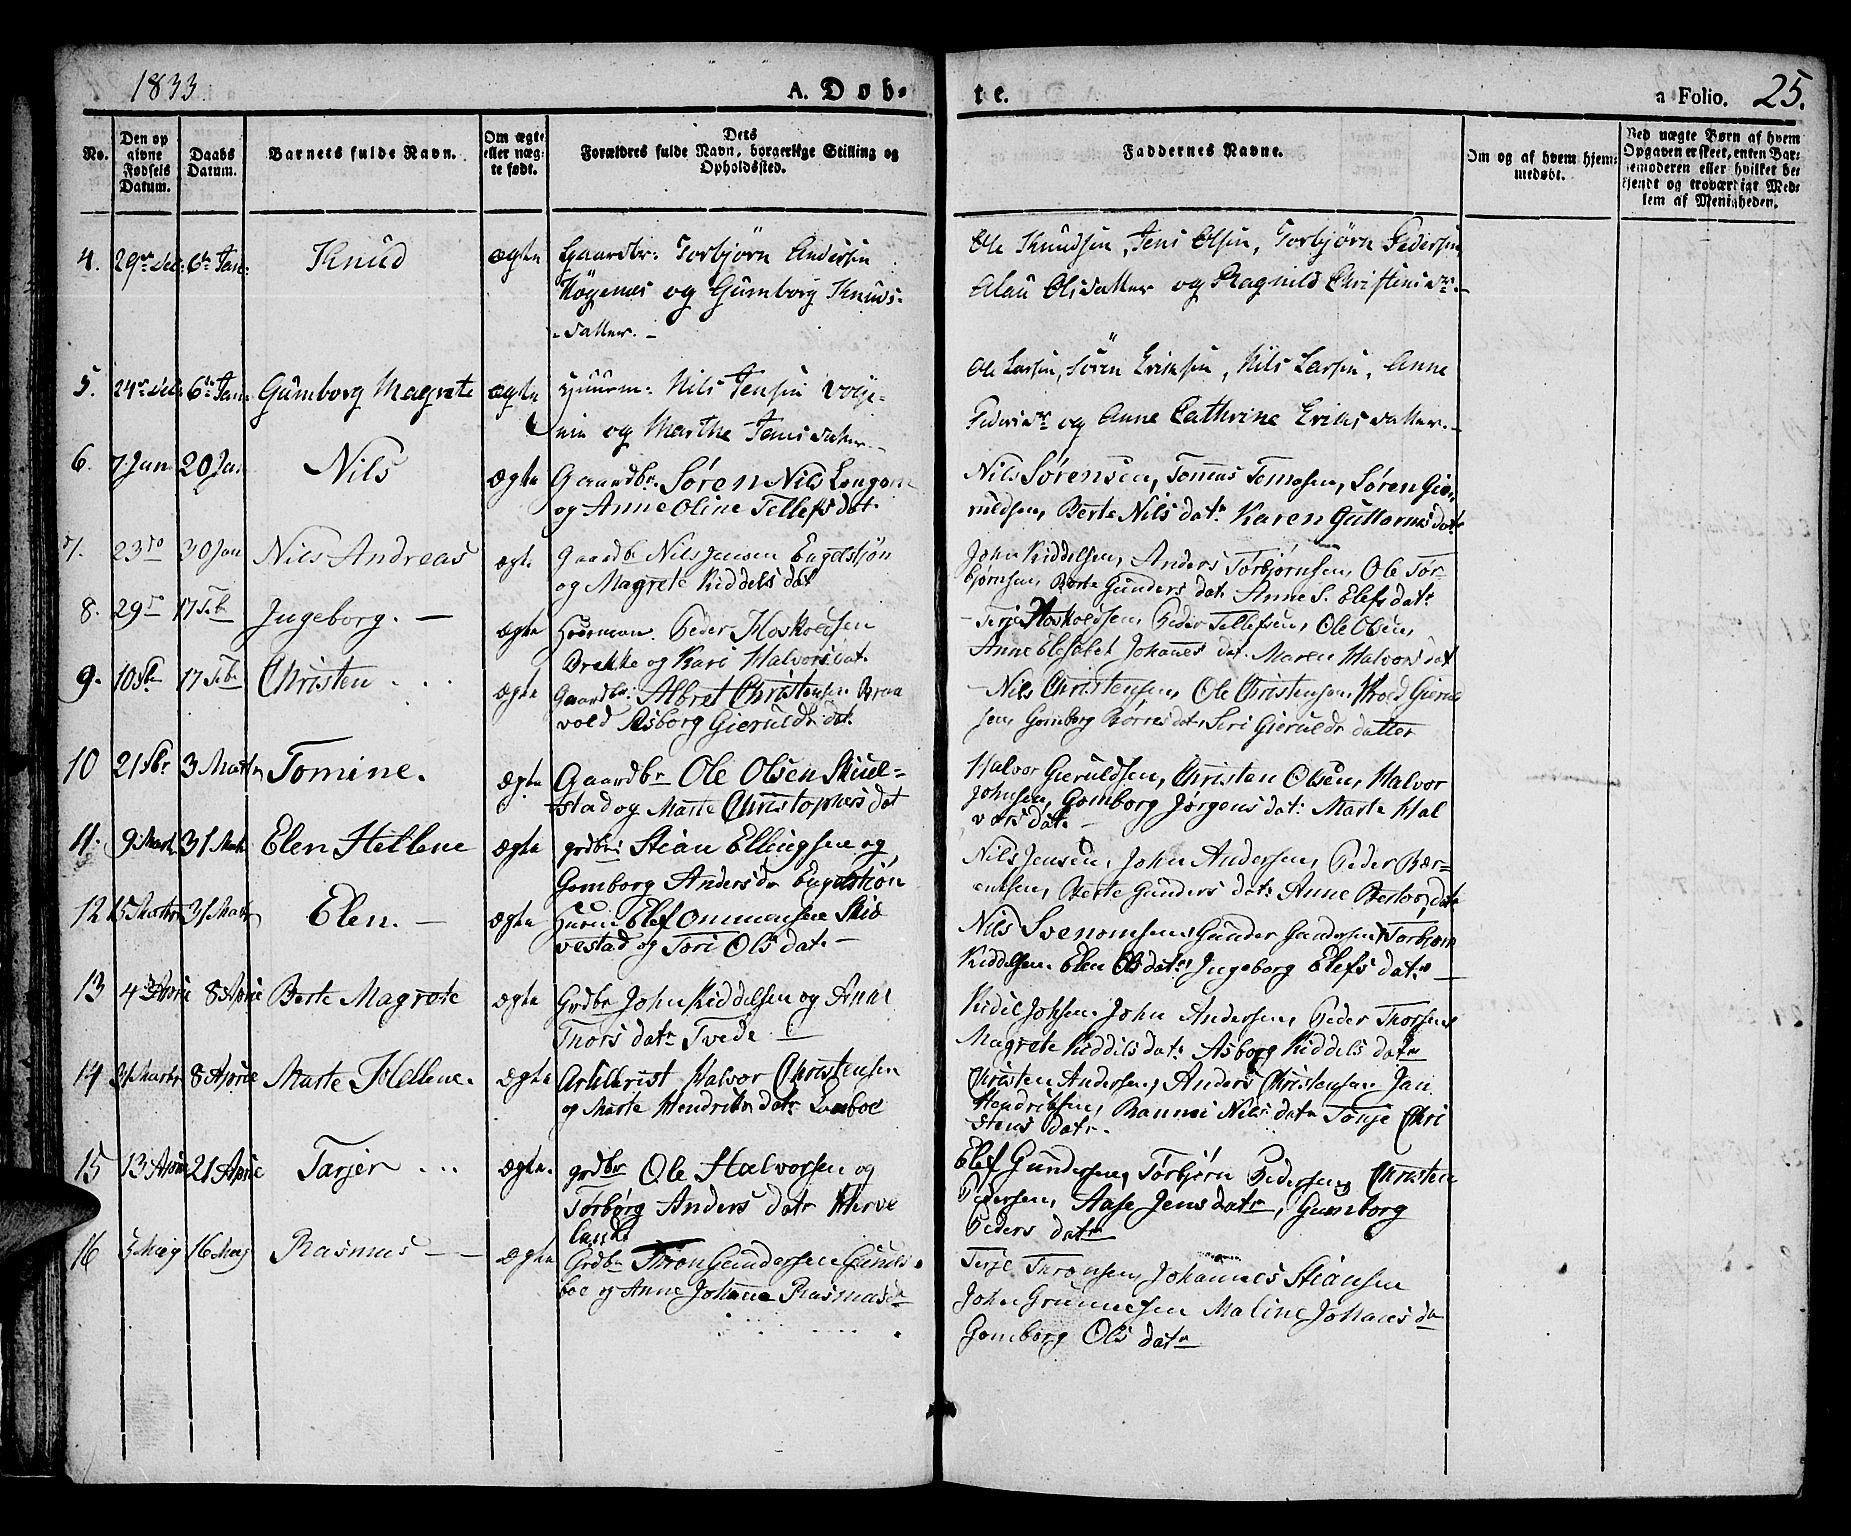 1833.
A. Døb-
te.
a Folio. 25.
No.
Den op
givne
Fødsels
Datum.
Daabs
Datum.
Barnets fulde Navn.
Om ægte
eller uæg-
te født.
Dets
Forældres fulde Navn, borgerlige Stilling og
Opholdssted.
Faddernes Navne.
Om og af hvem hjem-
medøbt.
Ved uægte Børn af hvem
Opgaven er skeet, enten Bar-
nemoderen eller hvilket be-
kjendt og troværdigt Med-
lem af Menigheden.
4. 29 Dec: 6te Jan: Knud ægte Gaardbr: Torbjörn Andersen
Høgenes og Gumborg Knuds-
-datter. -
Ole Knudsen, Jens Olsen, Torbjørn Pedersen,
Olau Olsdatter og Ragnild Christensdr. -
5. 24 Dec: 6te Jan: Gumborg Magrete ægte Huusm: Nils Jensen
og Marthe Jensdatter -
Ole Larsen, Sören Eriksen, Nils Larsen, Anne
Pedersdr og Anne Cathrine Eriksdatter. -
6. 7 Jan 20 Jan Nils ægte Gaardbr. Søren Nils Longom
og Anne Oline Tellefs dat.
Nils Sørensen, Tomas Tomasen, Søren Gie-
ruldsen, Berte Nils datr Karen Guttorms datr
7. 23 30 Jan Nils Andreas ægte Gaardb Nils Jensen Engelstiøn
og Magrete Kiddels dat
John Kiddelsen, Anders Torbjørnsen, Ole Tor-
bjørnsen, Berte Gunders dat. Anne S. Elefs datr
8. 29 17 Feb Ingeborg. - ægte Huusman. Peder Hoskoldsen
Brekke og Kari Halvors dat.
- Terje Hoskoldsen, Peder Tellefsen, Ole Olsen,
Anne Elisabet Johannes dat. Maren Halvors dat
9. 10 Feb 17 Feb Christen ... ægte Gaardbr: Albret Christensen Braa
vold Asborg Gieruldsdat.
- Nils Christensen, Ole Christensen, Gierul
sen, Gomborg Børres dat, Siri Gierulds datter
10 21 Fbr 3 Marts Tomine. ægte Gaardbr Ole Olsen Skiul-
stad og Marte Christophers dat
Halvor Gieruldsen, Christen Olsen, Halvor
Johnsen, Gomborg Jørgens dat: Marte Hal
vors dat. -
11. 9 Marts 31 Mar Elen Hellene ægte grdbr: Stian Ellingsen og
Gomborg Anders dr Engelstiön
Nils Jensen, John Andersen, Peder Bær-
entsen, Berte Gunders datr Anne Bertors dat
12 15 Marts 31 Marts Elen. - ægte Huusm: Elef Ommensen Skib
vestad og Tori Ols dat. -
Nils Svenomsen, Gunder Gundersen, Torbjorn
Kiddelsen. Elen Ols dat, Ingeborg Elefs datr -
13 4 Aprie 8 Aprie Berte Magrete ægte Grdbr John Kiddelsen og Anne
Thors datr Tvede -
Kidil Johsen. John Andersen, Peder Thorsen
Magrete Kiddils dat: Asborg Kiddels datr
14 31 Marts 8 Aprie Marte Hellene. ægte Artillrist Halvor Christensen
og Marte Hendriks datr
Christen Andersen, Anders Christensen Jan
Hendriksen, Raunni Nils datr Tonje Chri
stens datr.
15 13 Aprie 21 Aprie Tarjer ... ægte. grdbr Ole Halvorsen og
Torborg Anders datr Herve
land
Elef Gundersen, Torbjørn Pedersen, Christen
Pedersen, Aase Jens datr, Gumborg
Peders datr
16 5 Maj 16 Maj Rasmus - - ægte Grdbr Thron Gundersen Gunds-
boe og Anne Johanne Rasmusd
Terje Thronsen, Johannes Stiansen
John Grummesen Maline Johans da
Gomborg Ols datr